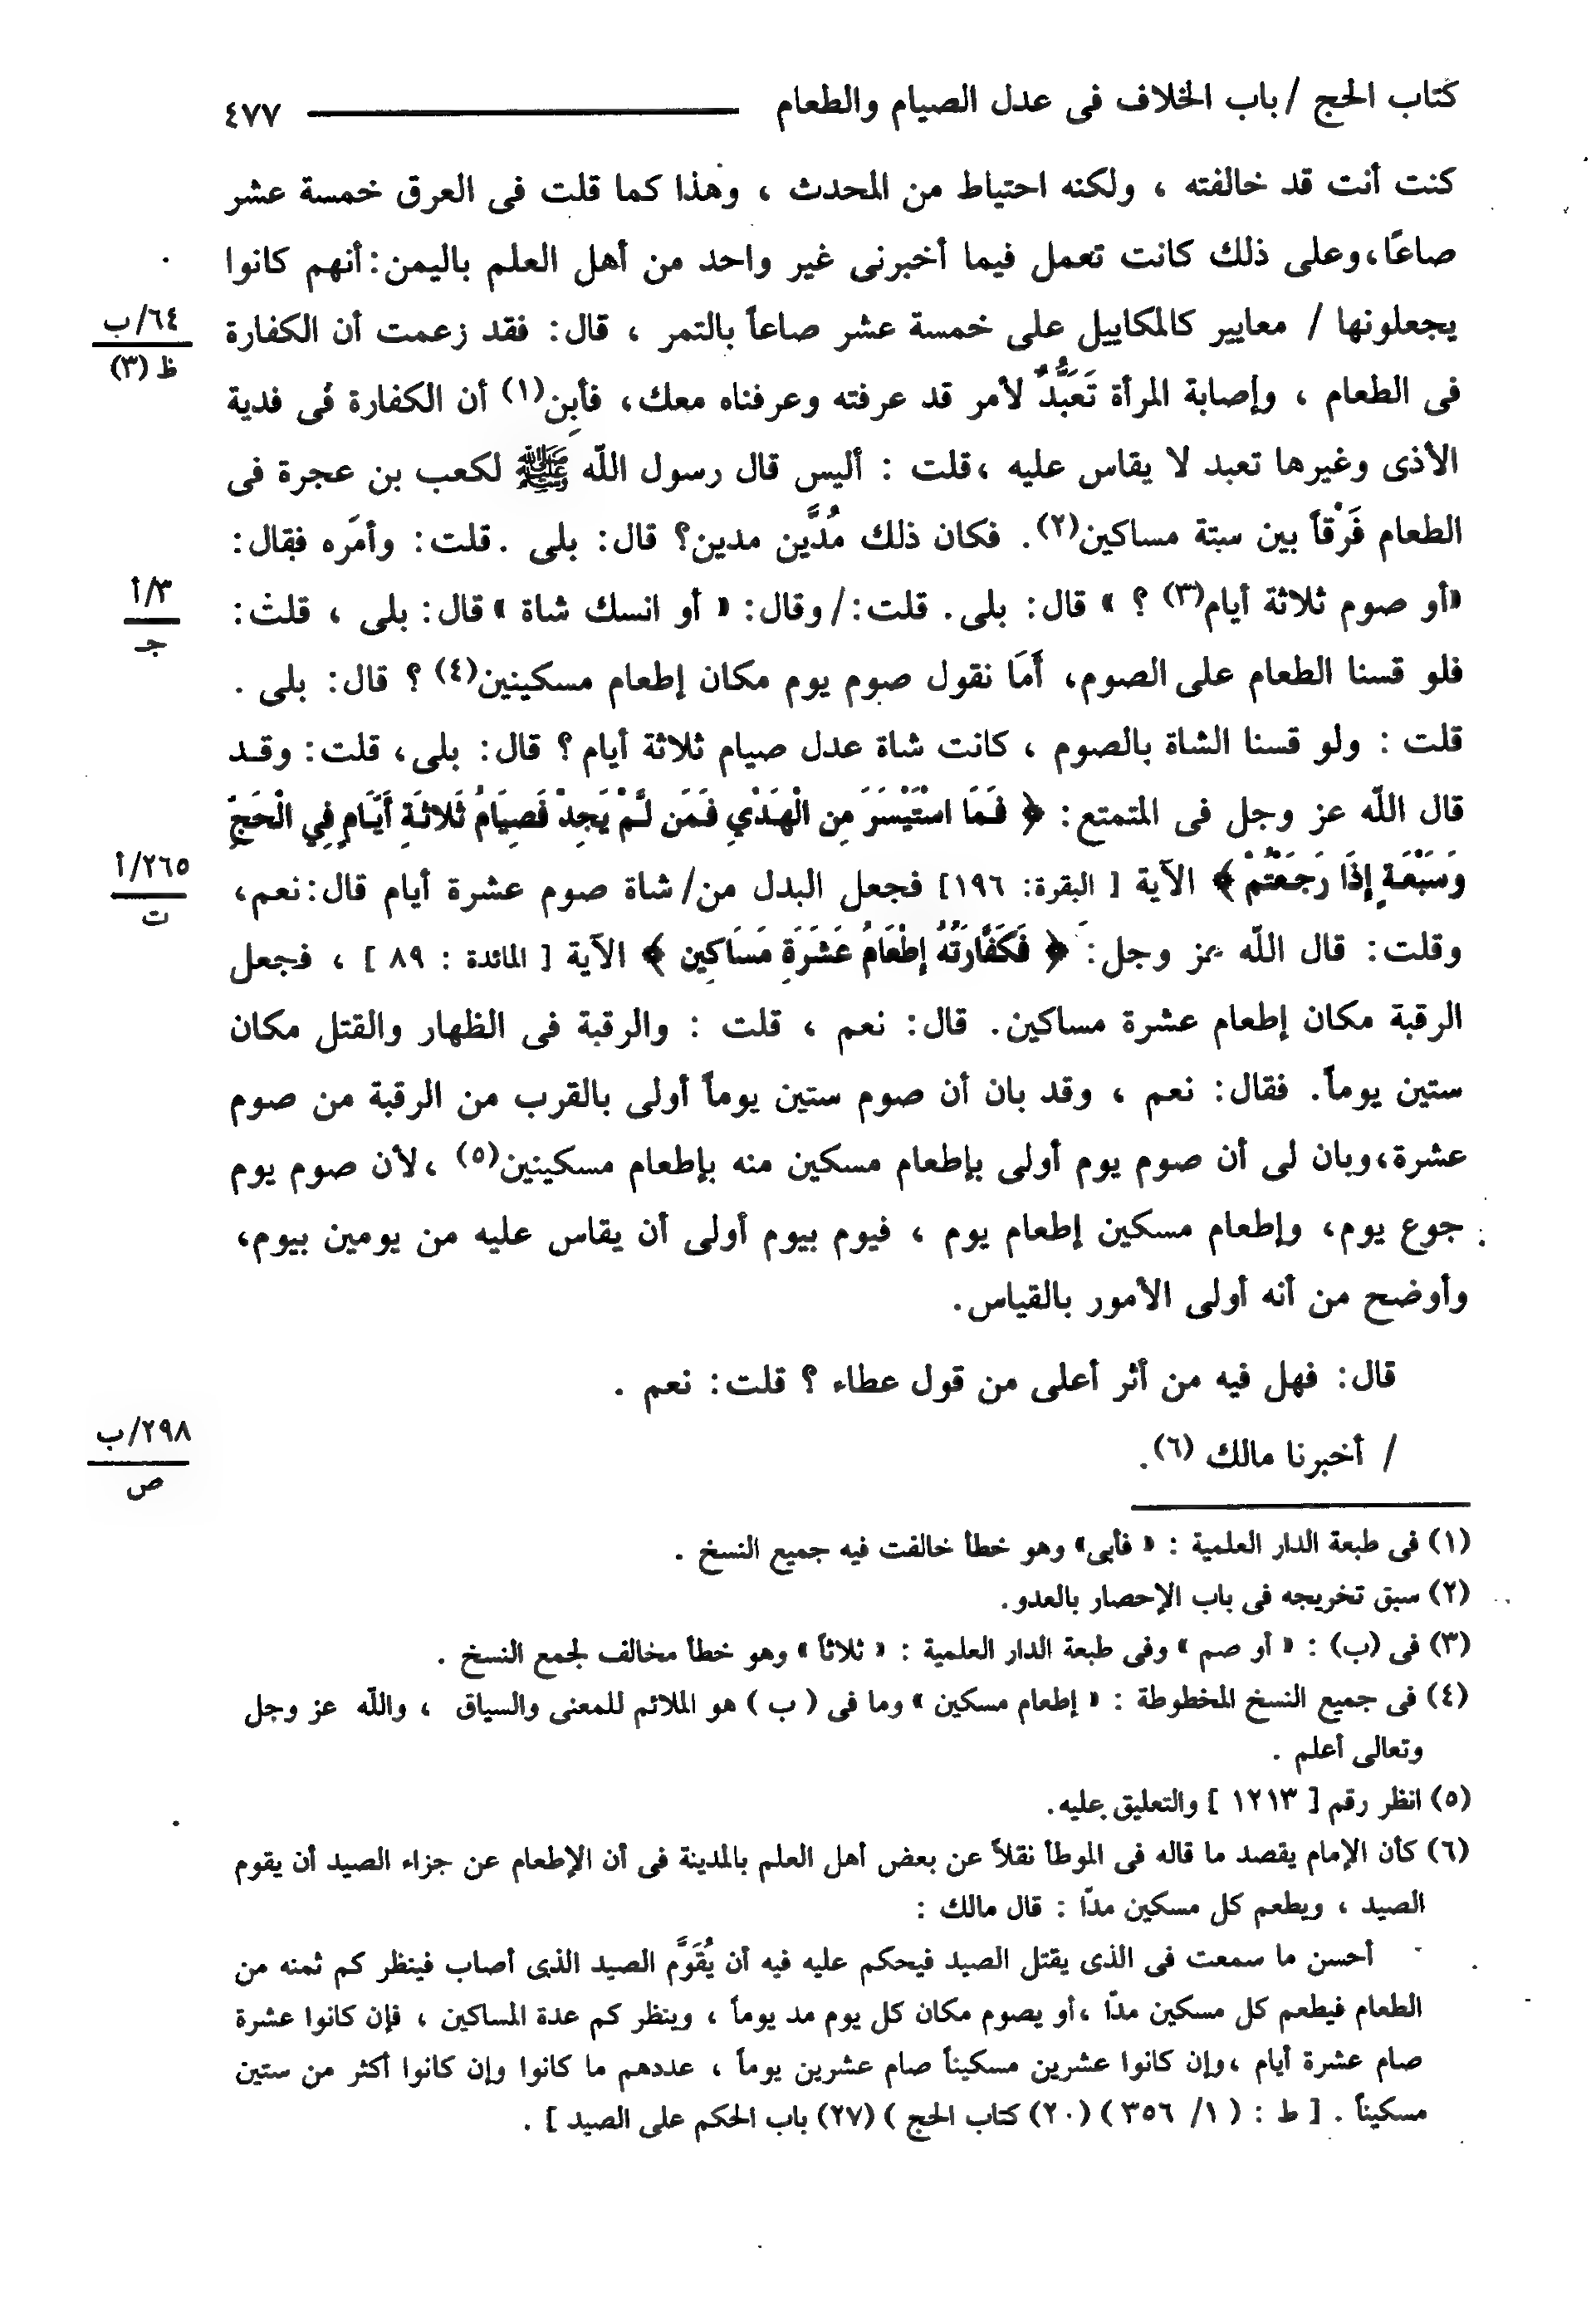 كتاب الحج / باب الخلاف فى عدل الصيام والطعام ٤٧٧
كنت أنت قد خالفته ، ولكنه احتياط من المحدث ، وهذا كما قلت فى العرق خمسة عشر
صاعًا،وعلى ذلك كانت تعمل فيما أخبرنى غير واحد من أهل العلم باليمن:أنهم كانوا
يجعلونها / معايير كالمكاييل على خمسة عشر صاعاً بالتمر ، قال: فقد زعمت أن الكفارة
٦٤/ب
ظ (٣)
فى الطعام ، وإصابة المرأة تَعَبُّدٌ لأمر قد عرفته وعرفناه معك، فأبِن(١) أن الكفارة فى فدية
الأذى وغيرها تعبد لا يقاس عليه ،قلت : أليس قال رسول اللّه ﷺ لكعب بن عجرة فى
الطعام فَرْقاً بين ستة مساكين(٢). فكان ذلك مُدَّين مدين؟ قال: بلى .قلت: وأمَره فقال:
«أو صوم ثلاثة أيام(٣) ؟ » قال: بلى. قلت:/ وقال: « أو انسك شاة » قال: بلى ، قلت:
٣/أ
جـ
فلو قسنا الطعام على الصوم، أَمَا نقول صوم يوم مكان إطعام مسكينين(٤) ؟ قال: بلى .
قلت : ولو قسنا الشاة بالصوم ، كانت شاة عدل صيام ثلاثة أيام ؟ قال: بلى، قلت: وقـد
قال اللّه عز وجل فى المتمتع: ﴿ فَمَا اسْتَيْسَرَ مِنَ الْهَدْيِ فَمَن لَّمْ يَجِدْ فَصِيَامُ ثَلاثَةِ أَيَّامٍ فِي الْحَجِّ
وَسَبْعَةٍ إِذَا رَجَعْتُمْ ﴾ الآية [ البقرة: ١٩٦] فجعل البدل من/ شاة صوم عشرة أيام قال:نعم،
٢٦٥/أ
ت
وقلت: قال اللّه عز وجل: ﴿ فَكَفَّارَتُهُ إِطْعَامُ عَشَرَةِ مَسَاكِينَ ﴾ الآية [ المائدة : ٨٩ ] ، فجعل
الرقبة مكان إطعام عشرة مساكين. قال: نعم ، قلت : والرقبة فى الظهار والقتل مكان
ستين يوماً. فقال: نعم ، وقد بان أن صوم ستين يوماً أولى بالقرب من الرقبة من صوم
عشرة،وبان لى أن صوم يوم أولى بإطعام مسكين منه بإطعام مسكينين(٥) ،لأن صوم يوم
جوع يوم، وإطعام مسكين إطعام يوم ، فيوم بيوم أولى أن يقاس عليه من يومين بيوم،
وأوضح من أنه أولى الأمور بالقياس.
قال: فهل فيه من أثر أعلى من قول عطاء ؟ قلت: نعم .
/ أخبرنا مالك (٦).
٢٩٨/ب
ص
(١) فى طبعة الدار العلمية : « فأبى» وهو خطأ خالفت فيه جميع النسخ .
(٢) سبق تخريجه فى باب الإحصار بالعدو.
(٣) فى (ب) : « أو صم » وفى طبعة الدار العلمية : « ثلاثاً » وهو خطأ مخالف لجمع النسخ .
(٤) فى جميع النسخ المخطوطة : « إطعام مسكين » وما فى ( ب ) هو الملائم للمعنى والسياق ، واللّه عز وجل
وتعالى أعلم .
(٥) انظر رقم [ ١٢١٣ ] والتعليق عليه.
(٦) كأن الإمام يقصد ما قاله فى الموطأ نقلاً عن بعض أهل العلم بالمدينة فى أن الإطعام عن جزاء الصيد أن يقوم
الصيد ، ويطعم كل مسكين مدّا : قال مالك :
أحسن ما سمعت فى الذى يقتل الصيد فيحكم عليه فيه أن يُقَوَّم الصيد الذى أصاب فينظر كم ثمنه من
الطعام فيطعم كل مسكين مدّا ،أو يصوم مكان كل يوم مد يوماً ، وينظر كم عدة المساكين ، فإن كانوا عشرة
صام عشرة أيام ،وإن كانوا عشرين مسكيناً صام عشرين يوماً ، عددهم ما كانوا وإن كانوا أكثر من ستين
مسكيناً . [ ط : ( ١/ ٣٥٦ ) (٢٠) كتاب الحج ) (٢٧) باب الحكم على الصيد ] .